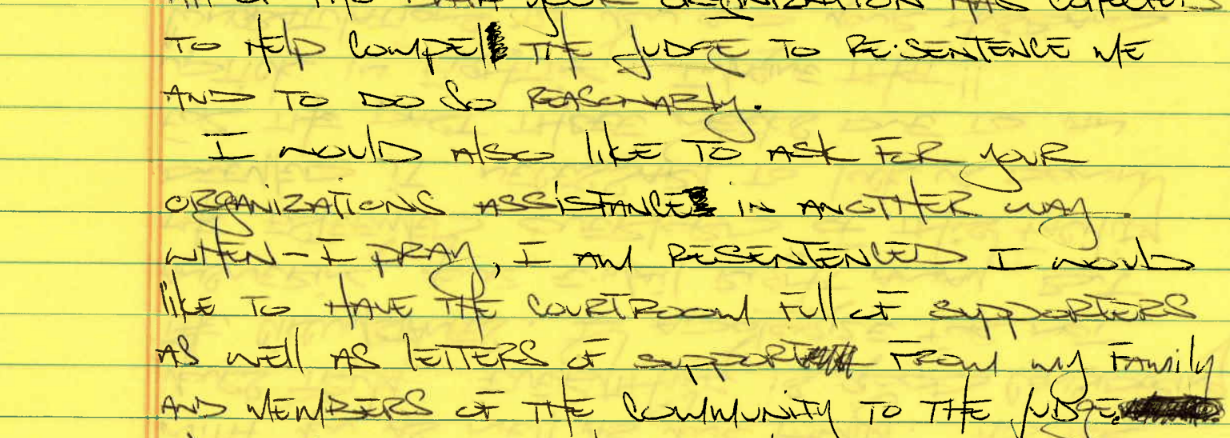 YOUR ORGANIZATION HAS
TO HELP COMPEL THE JUDGE TO RE-SENTENCE ME
AND TO DO SO REASONABLY.
I WOULD ALSO LIKE TO ASK FOR YOUR
ORGANIZATIONS ASSISTANCE IN ANOTHER WAY.
WHEN-I PRAY, I AM RESENTENCED I WOULD
LIKE TO HAVE THE COURTROOM FULL OF SUPPORTERS
AS WELL AS LETTERS OF SUPPORT FROM MY FAMILY
AND MEMBERS OF THE COMMUNITY TO THE JUDGE.